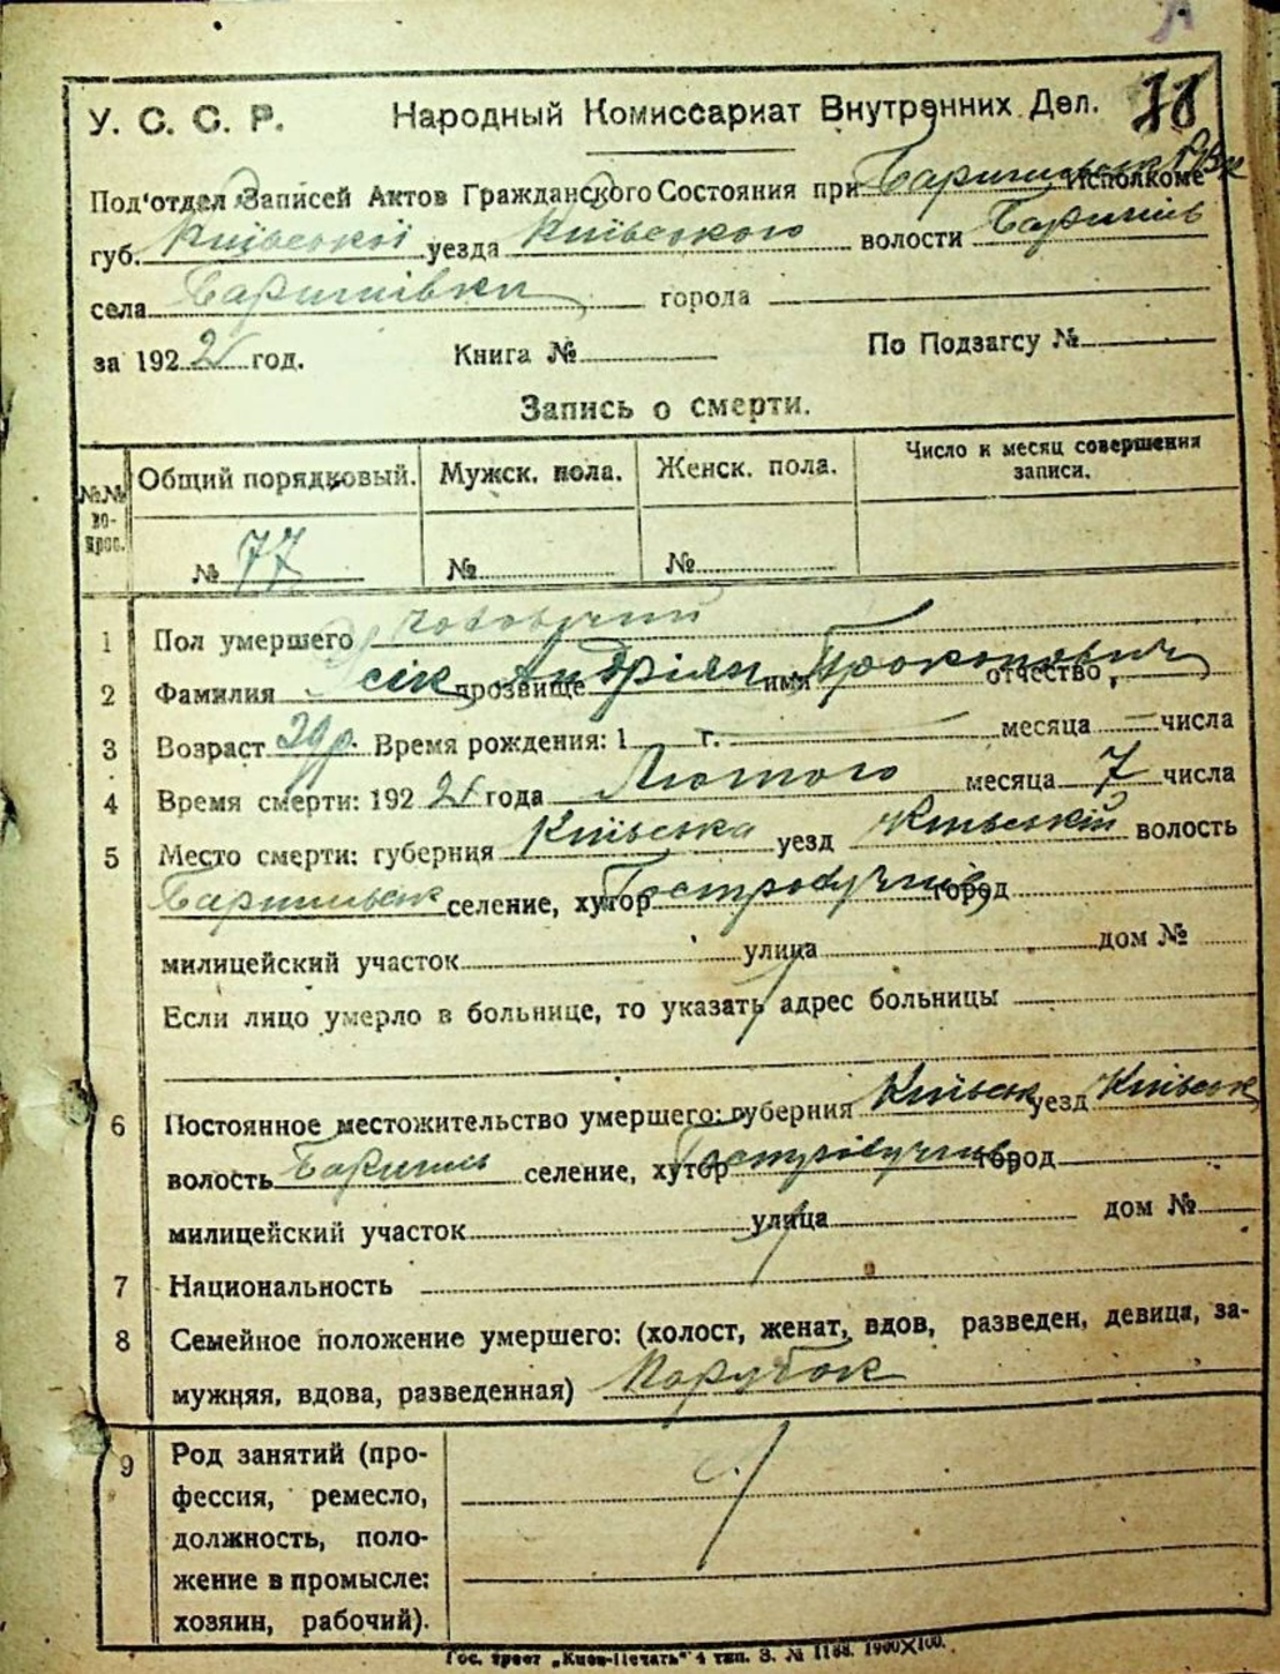 У. С. С. Р. Народный Комиссариат Внутренних Дел.
Под'отдел Записей Актов Гражданского Состояния при Исполкоме
губ. Київської уезда Київського волости Баришів
села Баришівки города
за 192 год. Книга № По Подзагсу №
Запись о смерти.
№№ во-прос. Общий порядковый. Мужск. пола. Женск. пола. Число и месяц совершения записи.
№ 77 № №
1 Пол умершего чоловічий
2 Фамилия прозвище Андріян имя Прокопович отчество
3 Возраст Время рождения: 1 г. месяца числа
4 Время смерти: 192 года Лютого месяца 7 числа
5 Место смерти: губерния Київська уезд Київській волость
Баришівськ селение, хутор город
милицейский участок улица дом №
Если лицо умерло в больнице, то указать адрес больницы
6 Постоянное местожительство умершего: губерния Київськ уезд Київськ
волость Баришів селение, хутор город
милицейский участок улица дом №
7 Национальность
8 Семейное положение умершего: (холост, женат, вдов, разведен, девица, за-
мужняя, вдова, разведенная) Парубок
9 Род занятий (про-
фессия, ремесло,
должность, поло-
жение в промысле:
хозяин, рабочий).
Гос. трест „Киев-Печать" 4 тип. З. № 1188. 1900Х100.